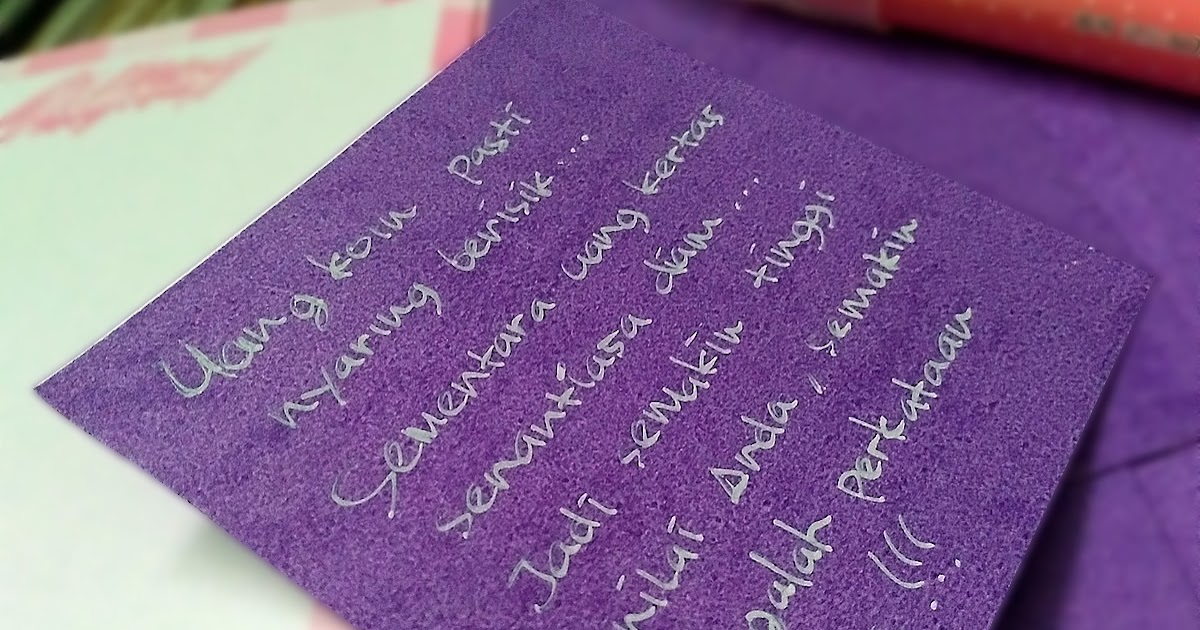 Uang koin pasti
nyaring berisik....
Sementara uang kertas
senantiasa diam...
Jadi semakin tinggi
nilai Anda, semakin
galah perkataan
!!!